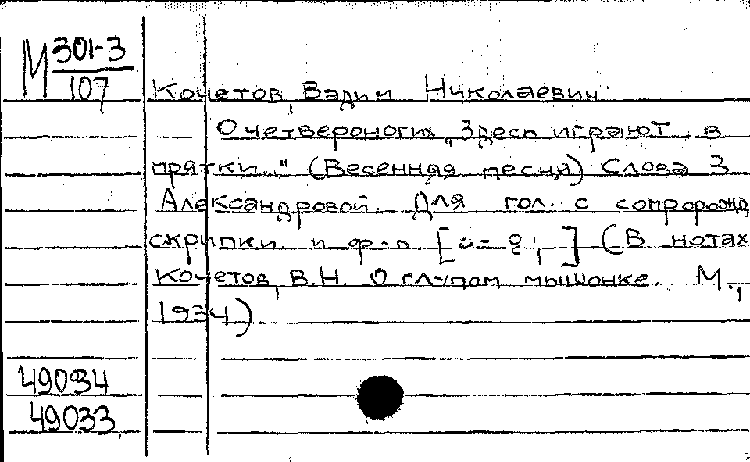 М 301-3
107
Кочетов, Вадим Николаевич.
О четвероногих "Здесь играют в
прятки.." (Весенняя песня) Слова З.
Александровой. Для гол. с сопровожд
скрипки и ф-п [ ] (В нотах
Кочетов, В.Н. О глупом мышонке. М.,
1934).
49034
49033